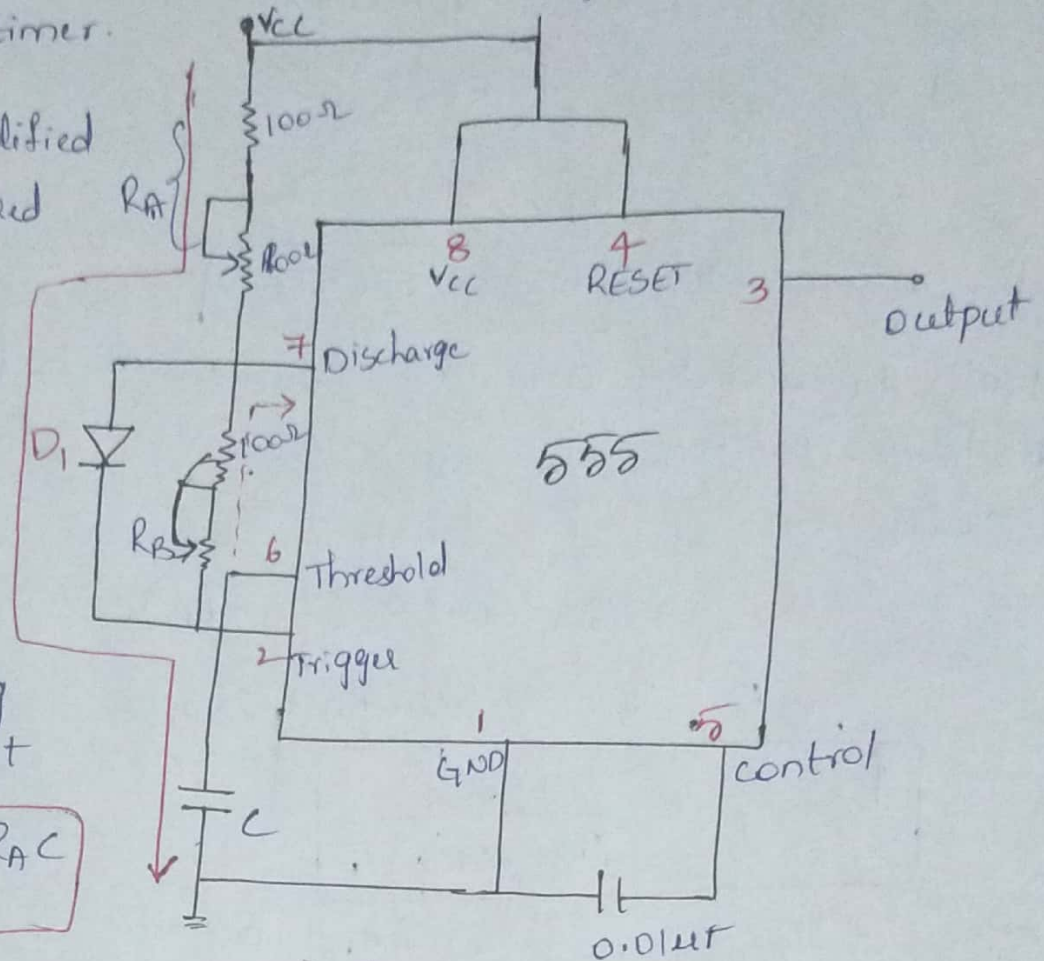 imer.
Vcc
lified
100Ω
ed
RA
8
Vcc
4
RESET
3
output
7
Discharge
D1
100Ω
555
RB
6
Threshold
2
Trigger
t
1
GND
5
control
RAC
C
0.01μF